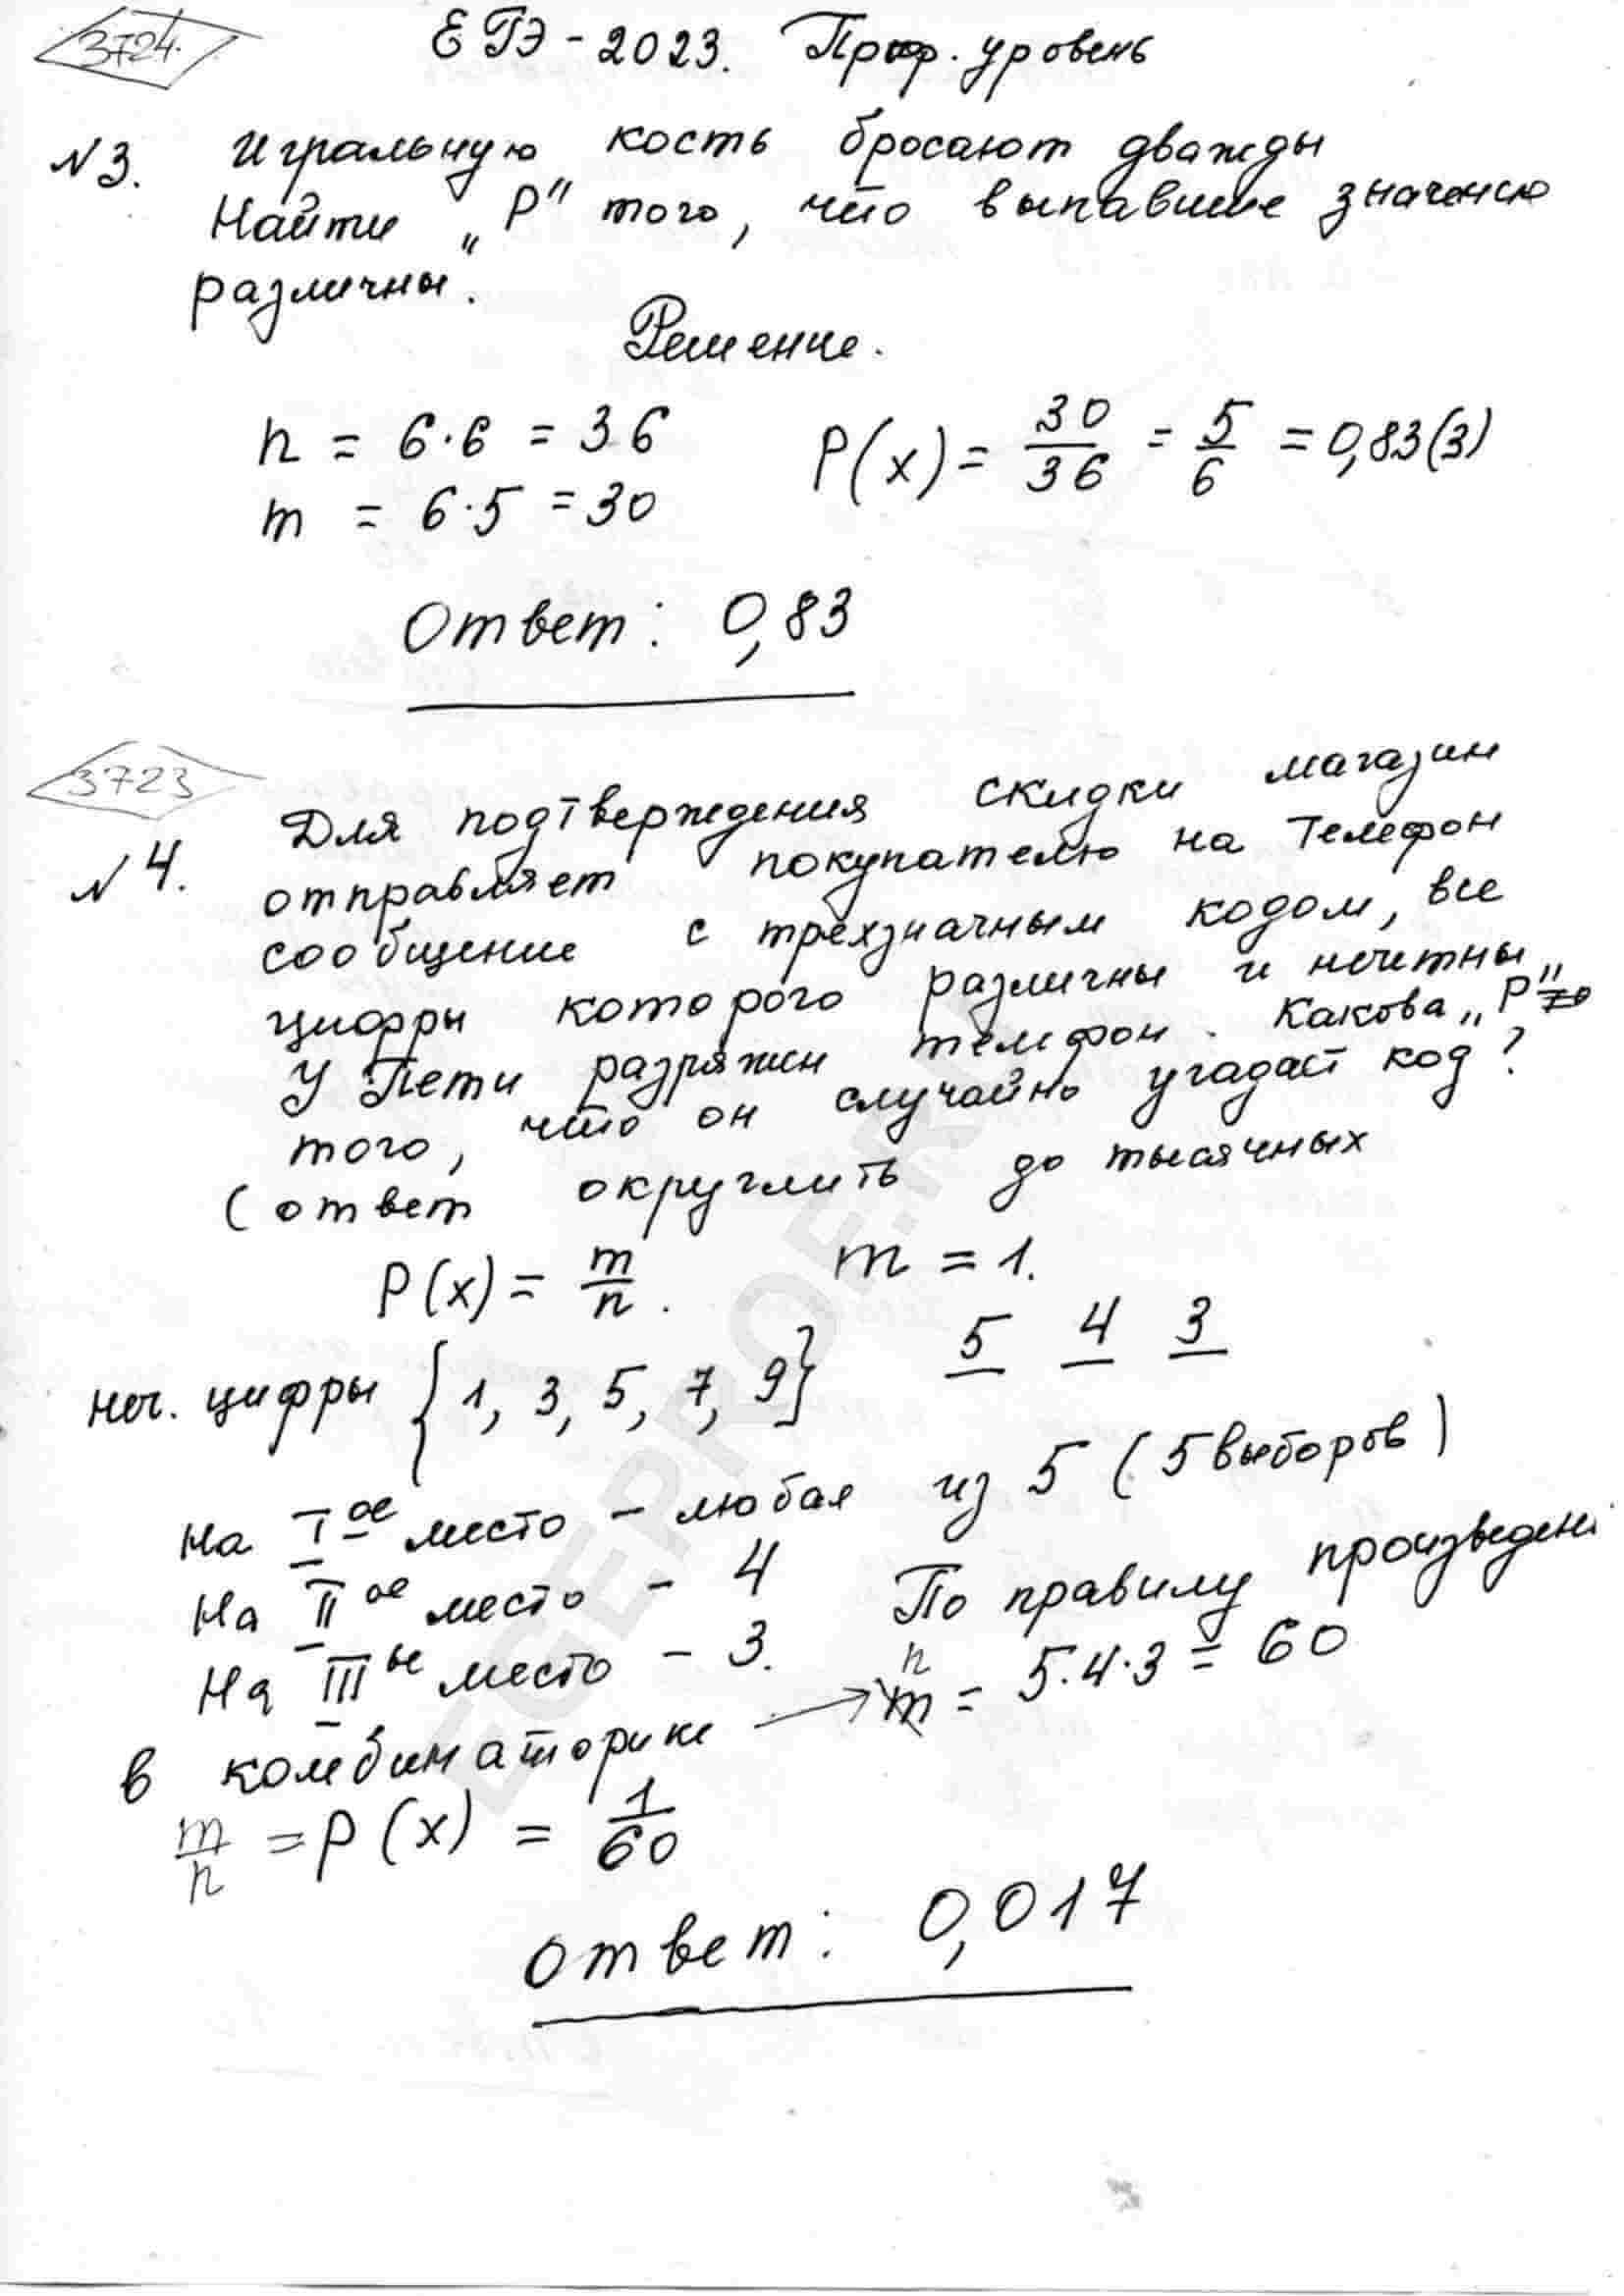 3724.
ЕГЭ - 2023. Проф. уровень
№3. Игральную кость бросают дважды
Найти „P" того, что выпавшие значения
различны.
Решение.
n = 6·6 = 36
m = 6·5 = 30
P(x) = 30/36 = 5/6 = 0,83(3)
Ответ: 0,83
3723
№4. Для подтверждения скидки магазин
отправляет покупателю на телефон
сообщение с трёхзначным кодом, все
цифры которого различны и нечетны
У Пети разряжен телефон. Какова „P"
того, что он случайно угадает код?
(ответ округлить до тысячных
P(x) = m/n. m = 1.
неч. цифры {1, 3, 5, 7, 9} 5 4 3
На I ое место - любая из 5 (5 выборов)
На II ое место - 4
На III ье место - 3.
По правилу произведени
в комбинаторике → n = 5·4·3 = 60
m/n = P(x) = 1/60
Ответ: 0,017
EGEPROER